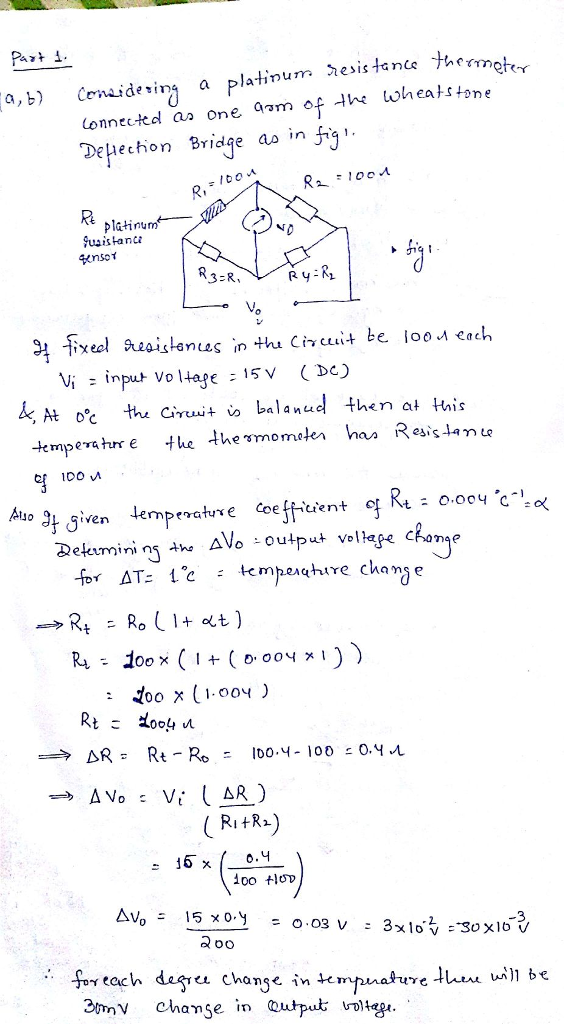 Part 1.
(a,b) Considering a platinum resistance thermoter
Connected as one arm of the wheatstone
Deflection Bridge as in fig 1.
R₁ = 100Ω
R₂ = 100Ω
Rt platinum
resistance
sensor
VD
fig 1.
R3=R₁
R4=R₂
Vo
If fixed resistences in the Circuit be 100Ω each
Vi = input voltage = 15V (DC)
&, At 0°c the Circuit is balanced then at this
temperature the thermometer has Resistance
of 100Ω
Also If given temperature coefficient of Rt = 0.004 °C⁻¹ = α
Determining the ΔVo = output voltage change
for ΔT = 1°c = temperature change
⇒ Rt = Ro (1 + αt)
Rt = 100 x (1 + (0.004 x 1))
= 100 x (1.004)
Rt = 100.4Ω
⇒ ΔR = Rt - Ro = 100.4 - 100 = 0.4Ω
⇒ ΔVo = Vi (ΔR)
(R1+R2)
= 15 x (0.4
100 + 100)
ΔVo = 15 x 0.4 = 0.03 V = 3x10⁻² V = 30 x 10⁻³ V
200
∴ for each degree change in temperature there will be
30mV change in Output voltage.